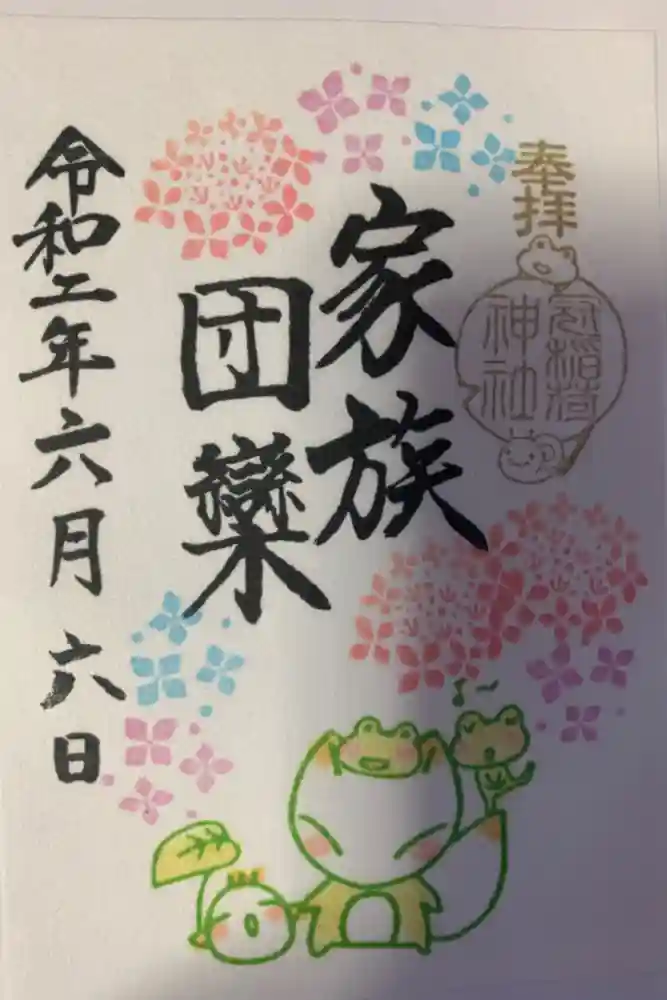 奉拝
稲荷
神社
家族
団欒
令和二年六月六日